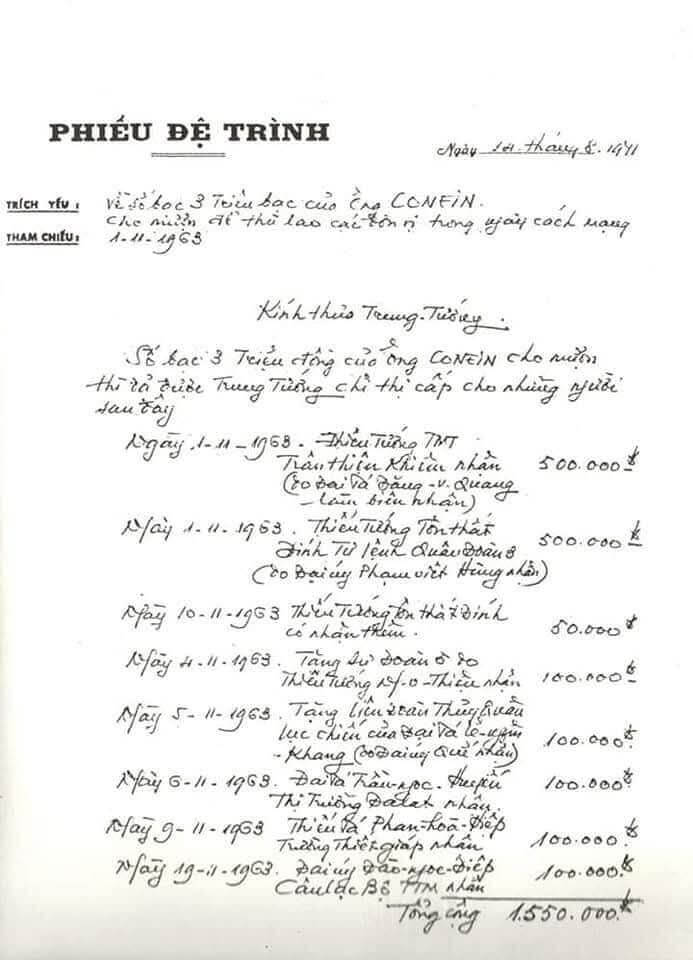 PHIẾU ĐỆ TRÌNH
Ngày 14 tháng 8. 1971
TRÍCH YẾU : Về số bạc 3 Triệu bạc của Ông CONEIN.
cho mượn để thù lao các đơn vị trong ngày cách mạng
THAM CHIẾU : 1-11-1963
Kính thưa Trung-Tướng.
Số bạc 3 Triệu đồng của Ông CONEIN cho mượn
thì đã được Trung Tướng chỉ thị cấp cho những người
sau đây
Ngày 1-11-1963. Thiếu Tướng TMT
Trần thiện Khiêm nhận 500.000$
(do Đại Tá Đặng-v. Quang
làm biên nhận)
Ngày 1-11-1963. Thiếu tướng Tôn thất
Đính Tư lệnh Quân Đoàn 3 500.000$
(do Đại úy Phạm viết Hùng nhận)
Ngày 10-11-1963 Thiếu Tướng Tôn thất Đính
có nhận thêm. 50.000$
Ngày 4-11-1963. Tặng Sư Đoàn 5 do
Thiếu Tướng Ng-v-Thiệu nhận 100.000$
Ngày 5-11-1963. Tặng liên đoàn Thủy Quân
lục chiến của Đại Tá lê-nguyên
-Khang (do Đại úy Quế nhận) 100.000$
Ngày 6-11-1963. Đại Tá Trần-ngọc-Huyến
Thị Trưởng Dalat nhận. 100.000$
Ngày 9-11-1963 Thiếu Tá Phan-hoà-Hiệp
Trường Thiết giáp nhận 100.000$
Ngày 19-11-1963. Đại úy Đào-ngọc-Điệp
Câu lạc Bộ TTM nhận 100.000$
Tổng cộng 1.550.000$